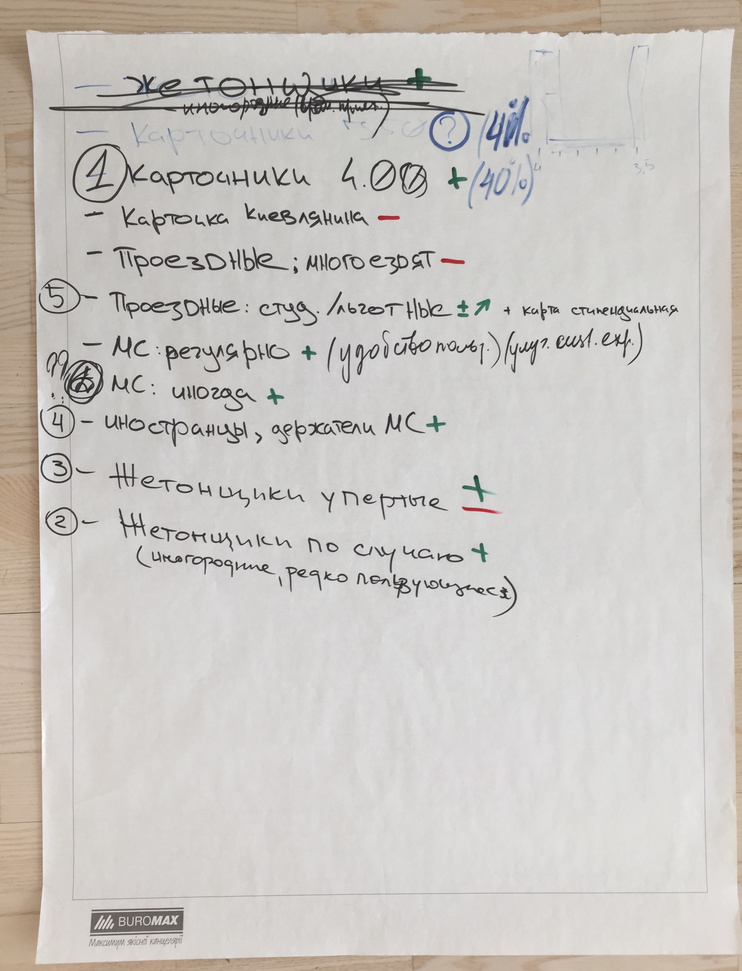 — жетонщики +
иногородние
— Карточники ? (40%
1 Карточники 4.00 + (40%)
— Карточка Киевлянина —
— Проездные; много ездят —
5 — Проездные: студ./льготные ± ↗ + карта стипендиальная
— МС: регулярно + (удобство польз.) (улуч. cust. exp.)
??
МС: иногда +
4 — иностранцы, держатели МС +
3 — Жетонщики упертые ±
2 — Жетонщики по случаю +
(иногородние, редко пользующиеся)
3,5
BUROMAX
Максимум якісної канцелярії